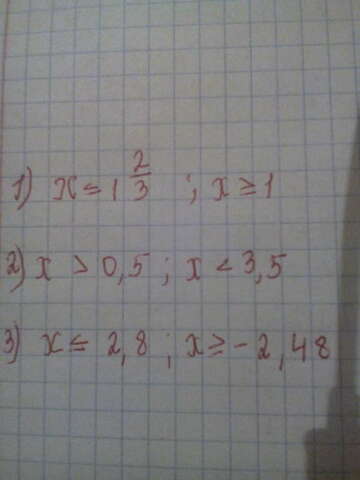 1) x ≤ 1 2/3 ; x ≥ 1
2) x > 0,5 ; x < 3,5
3) x ≤ 2,8 ; x ≥ -2,48